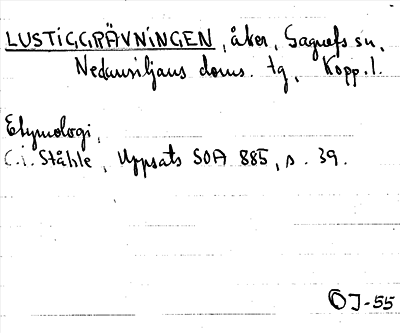 LUSTIGGRÄVNINGEN, åker, Sagnefs sn,
Nedansiljans doms. tg, Kopp. l.
Etymologi,
C.I. Ståhle, Uppsats SOA 885, s. 39.
ÖJ-55